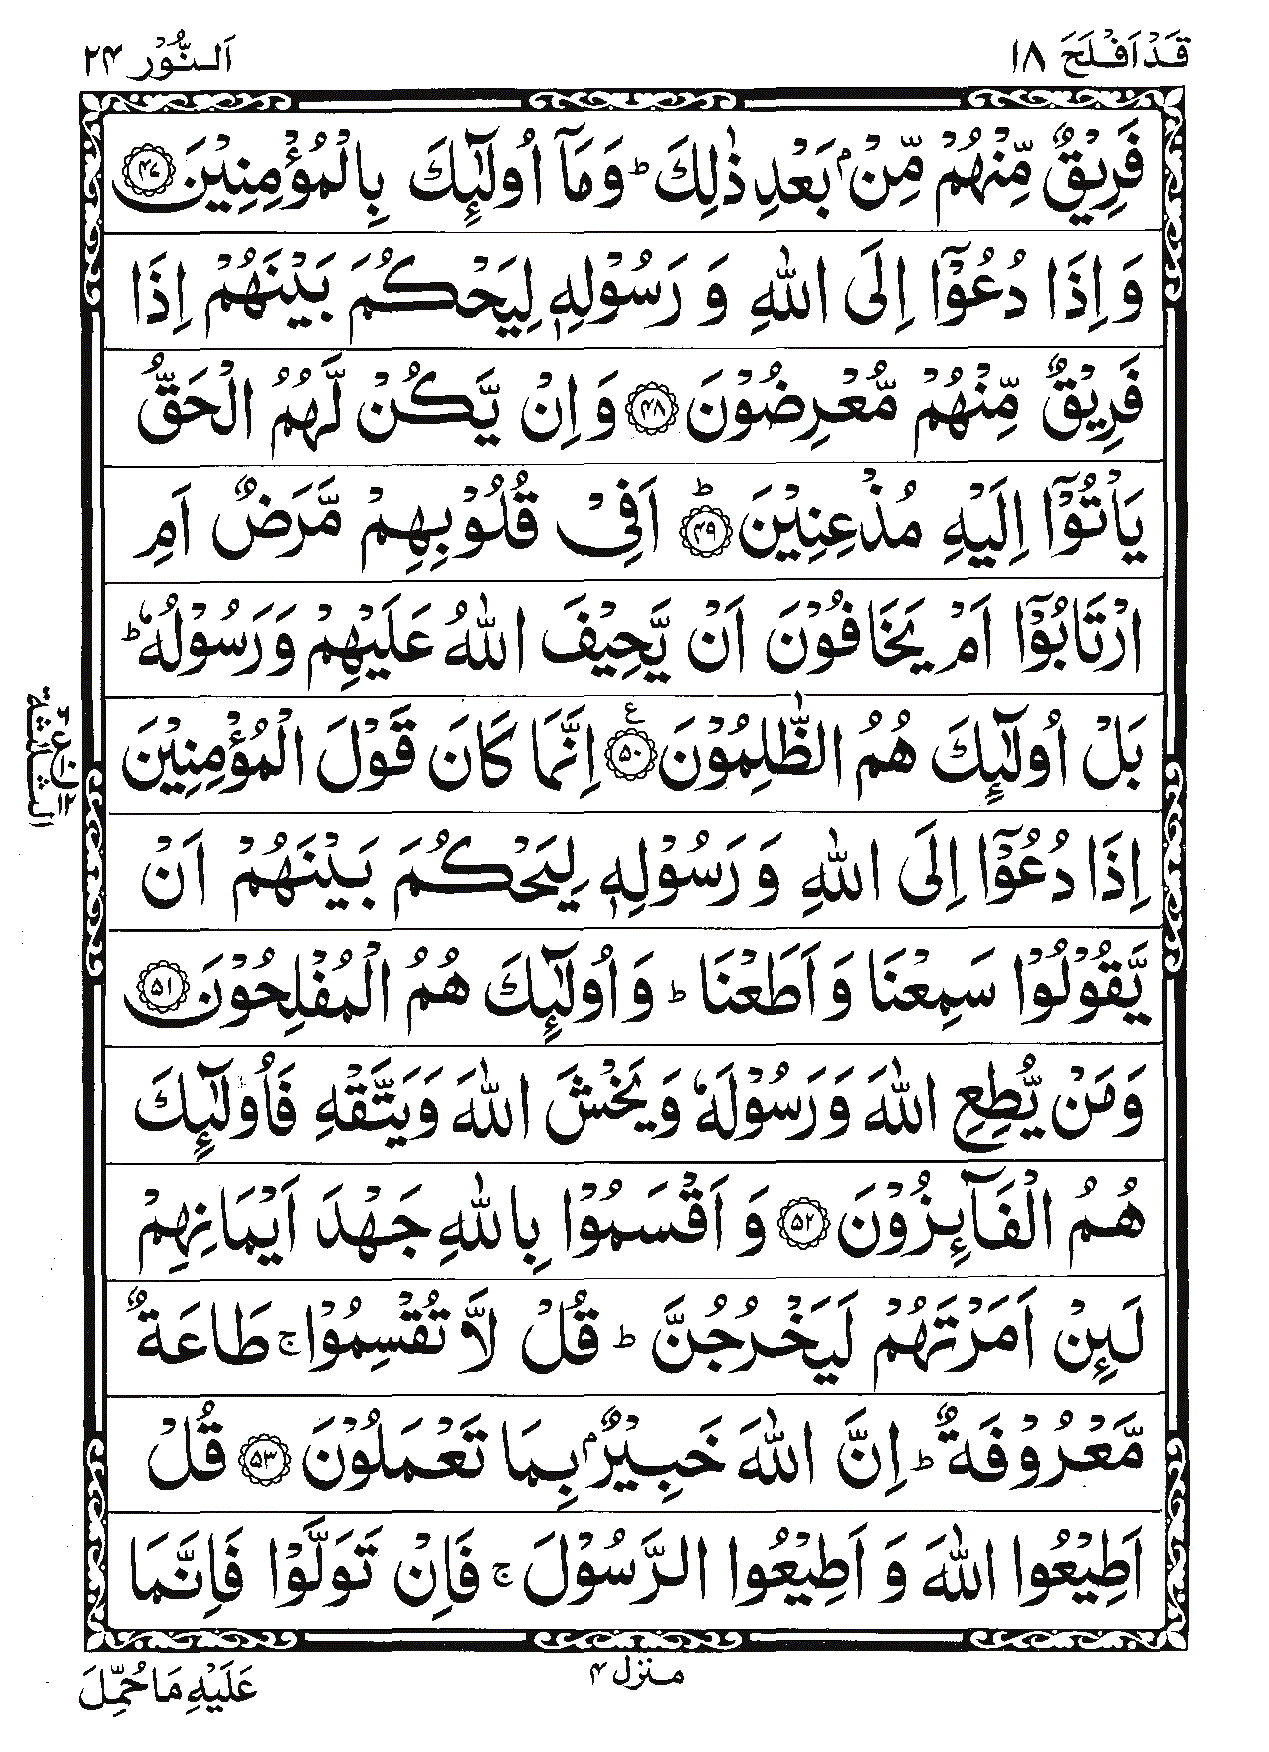 قَدْ اَفْلَحَ ١٨
اَلنُّوْر ٢٤
فَرِيْقٌ مِّنْهُمْ مِّنْۢ بَعْدِ ذٰلِكَ ؕ وَمَاۤ اُولٰٓئِكَ بِالْمُؤْمِنِيْنَ ﴿٤٧﴾
وَ اِذَا دُعُوْۤا اِلَى اللّٰهِ وَ رَسُوْلِهٖ لِيَحْكُمَ بَيْنَهُمْ اِذَا
فَرِيْقٌ مِّنْهُمْ مُّعْرِضُوْنَ ﴿٤٨﴾ وَ اِنْ يَّكُنْ لَّهُمُ الْحَقُّ
يَاْتُوْۤا اِلَيْهِ مُذْعِنِيْنَ ﴿٤٩﴾ؕ اَفِيْ قُلُوْبِهِمْ مَّرَضٌ اَمِ
ارْتَابُوْۤا اَمْ يَخَافُوْنَ اَنْ يَّحِيْفَ اللّٰهُ عَلَيْهِمْ وَرَسُوْلُهٗ ؕ
بَلْ اُولٰٓئِكَ هُمُ الظّٰلِمُوْنَ ﴿٥٠﴾ۧ اِنَّمَا كَانَ قَوْلَ الْمُؤْمِنِيْنَ
اِذَا دُعُوْۤا اِلَى اللّٰهِ وَ رَسُوْلِهٖ لِيَحْكُمَ بَيْنَهُمْ اَنْ
يَّقُوْلُوْا سَمِعْنَا وَ اَطَعْنَا ؕ وَ اُولٰٓئِكَ هُمُ الْمُفْلِحُوْنَ ﴿٥١﴾
وَمَنْ يُّطِعِ اللّٰهَ وَ رَسُوْلَهٗ وَ يَخْشَ اللّٰهَ وَيَتَّقْهِ فَاُولٰٓئِكَ
هُمُ الْفَآئِزُوْنَ ﴿٥٢﴾ وَ اَقْسَمُوْا بِاللّٰهِ جَهْدَ اَيْمَانِهِمْ
لَئِنْ اَمَرْتَهُمْ لَيَخْرُجُنَّ ؕ قُلْ لَّا تُقْسِمُوْا ۚ طَاعَةٌ
مَّعْرُوْفَةٌ ؕ اِنَّ اللّٰهَ خَبِيْرٌۢ بِمَا تَعْمَلُوْنَ ﴿٥٣﴾ قُلْ
اَطِيْعُوا اللّٰهَ وَ اَطِيْعُوا الرَّسُوْلَ ۚ فَاِنْ تَوَلَّوْا فَاِنَّمَا
منزل ٤
عَلَيْهِ مَا حُمِّلَ
الثلثة